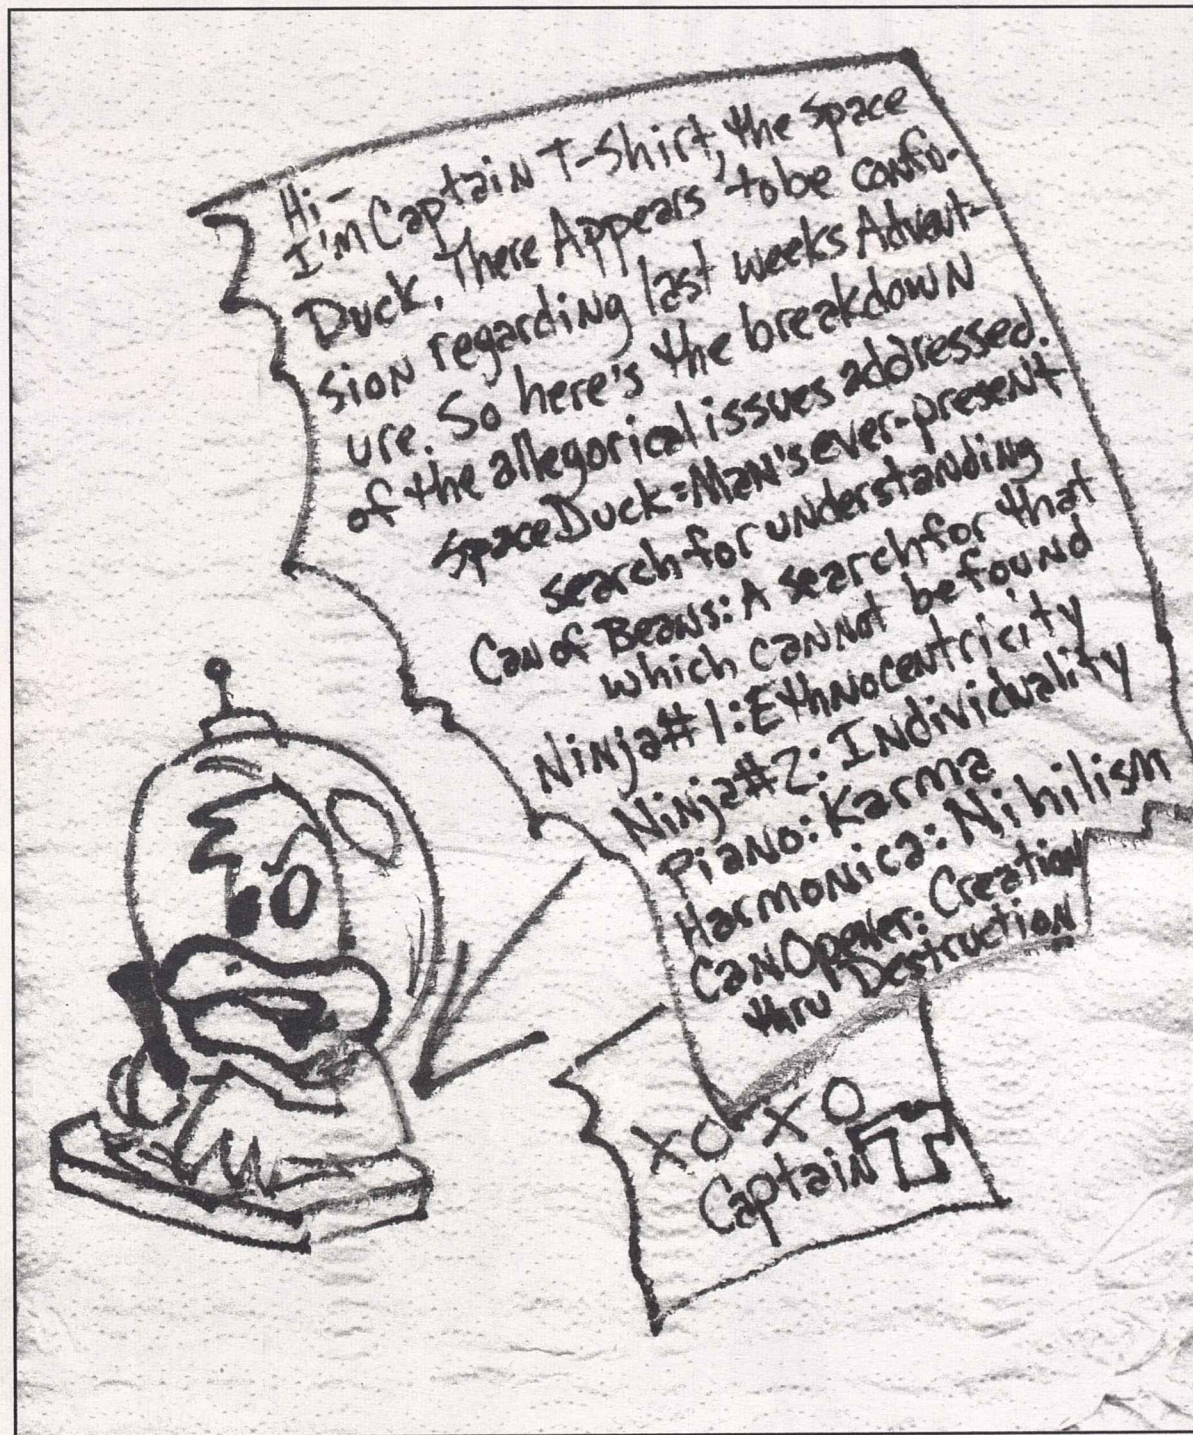 Hi-
I'm Captain T-Shirt, the Space
Duck. There Appears to be confu-
sion regarding last weeks Advent-
ure. So here's the breakdown
of the allegorical issues addressed.
Space Duck = Man's ever-present
search for understanding
Can of Beans: A search for that
which cannot be found
Ninja #1: Ethnocentricity
Ninja #2: Individuality
Piano: Karma
Harmonica: Nihilism
Can Opener: Creation
thru Destruction
XO XO
Captain T